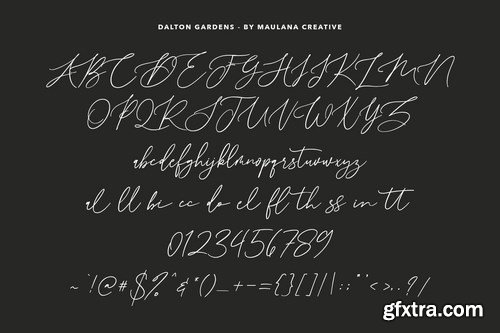 DALTON GARDENS - BY MAULANA CREATIVE
ABCDEFGHIJKLMN
OPQRSTUVWXYZ
abcdefghijklmnopqrstuvwxyz
al ll be cc do el fl th ss in tt
0123456789
~`!@#$%^&*()_+-={}[]|\:;"'<>,.?/
gfxtra.com